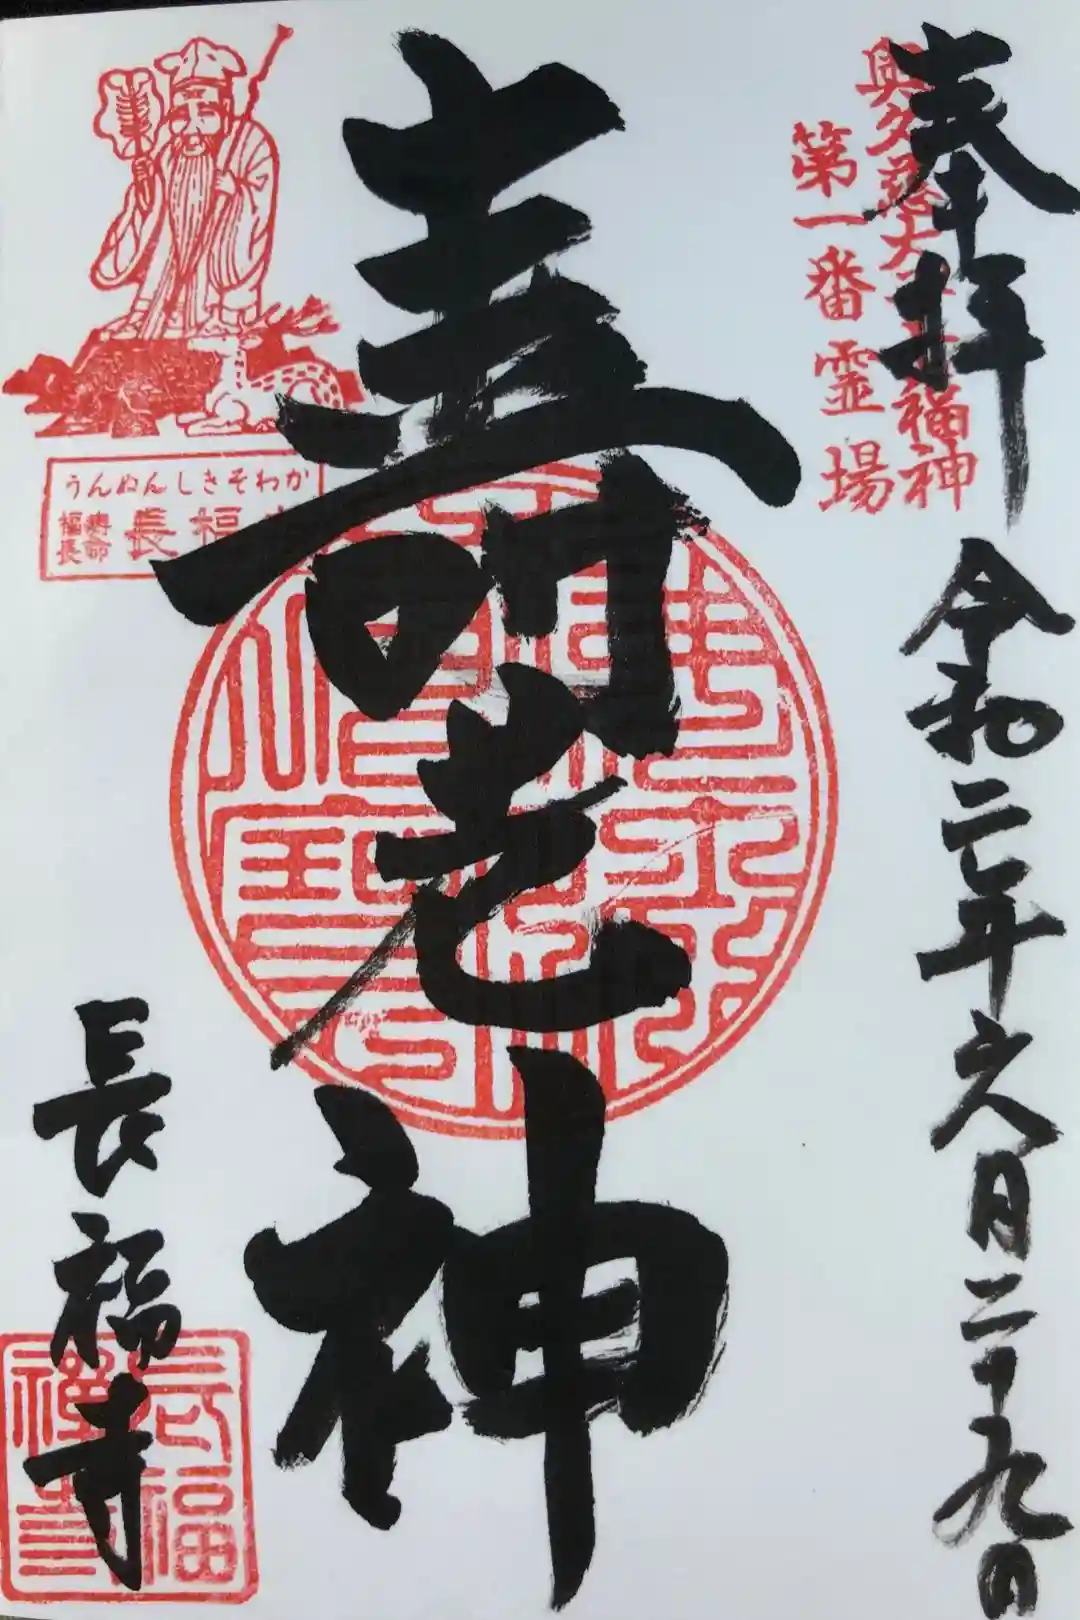 奉拝
令和二年六月二十九日
奥久慈大子七福神
第一番霊場
寿老神
うんぬんしきそわか
福寿
長命
長福寺
長福寺